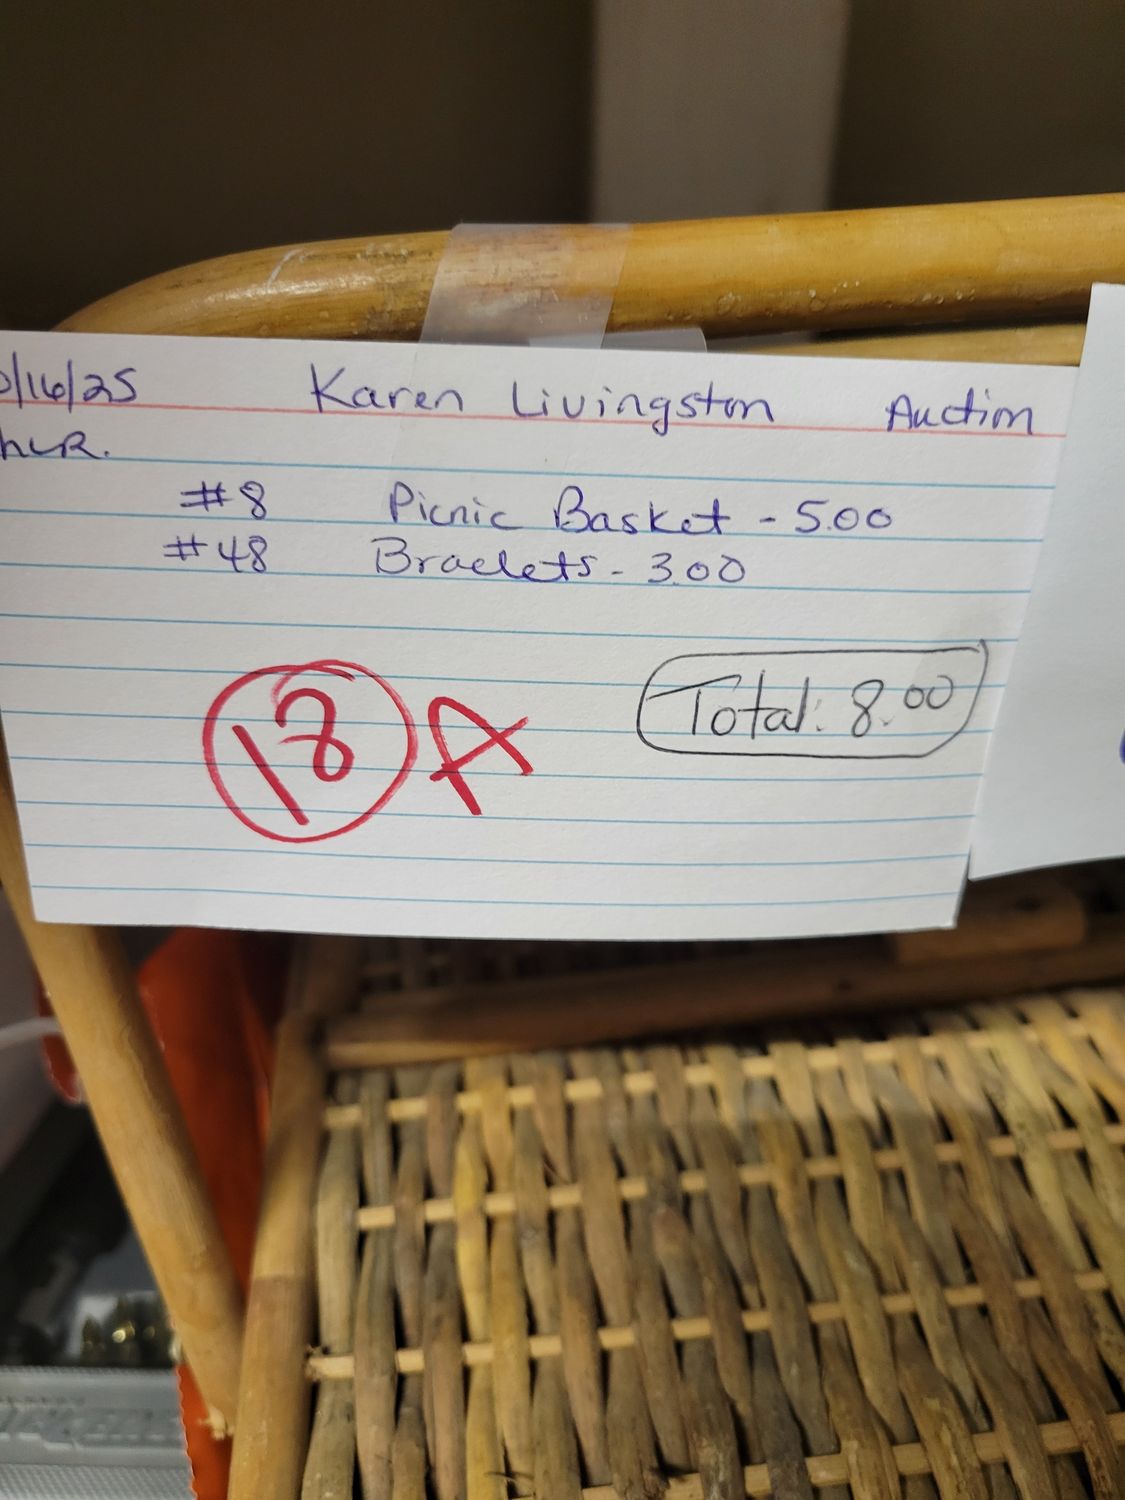 /16/25 Karen Livingston Auction
#8 Picnic Basket - 5.00
#48 Braclets - 3.00
18 A
Total: 8.00